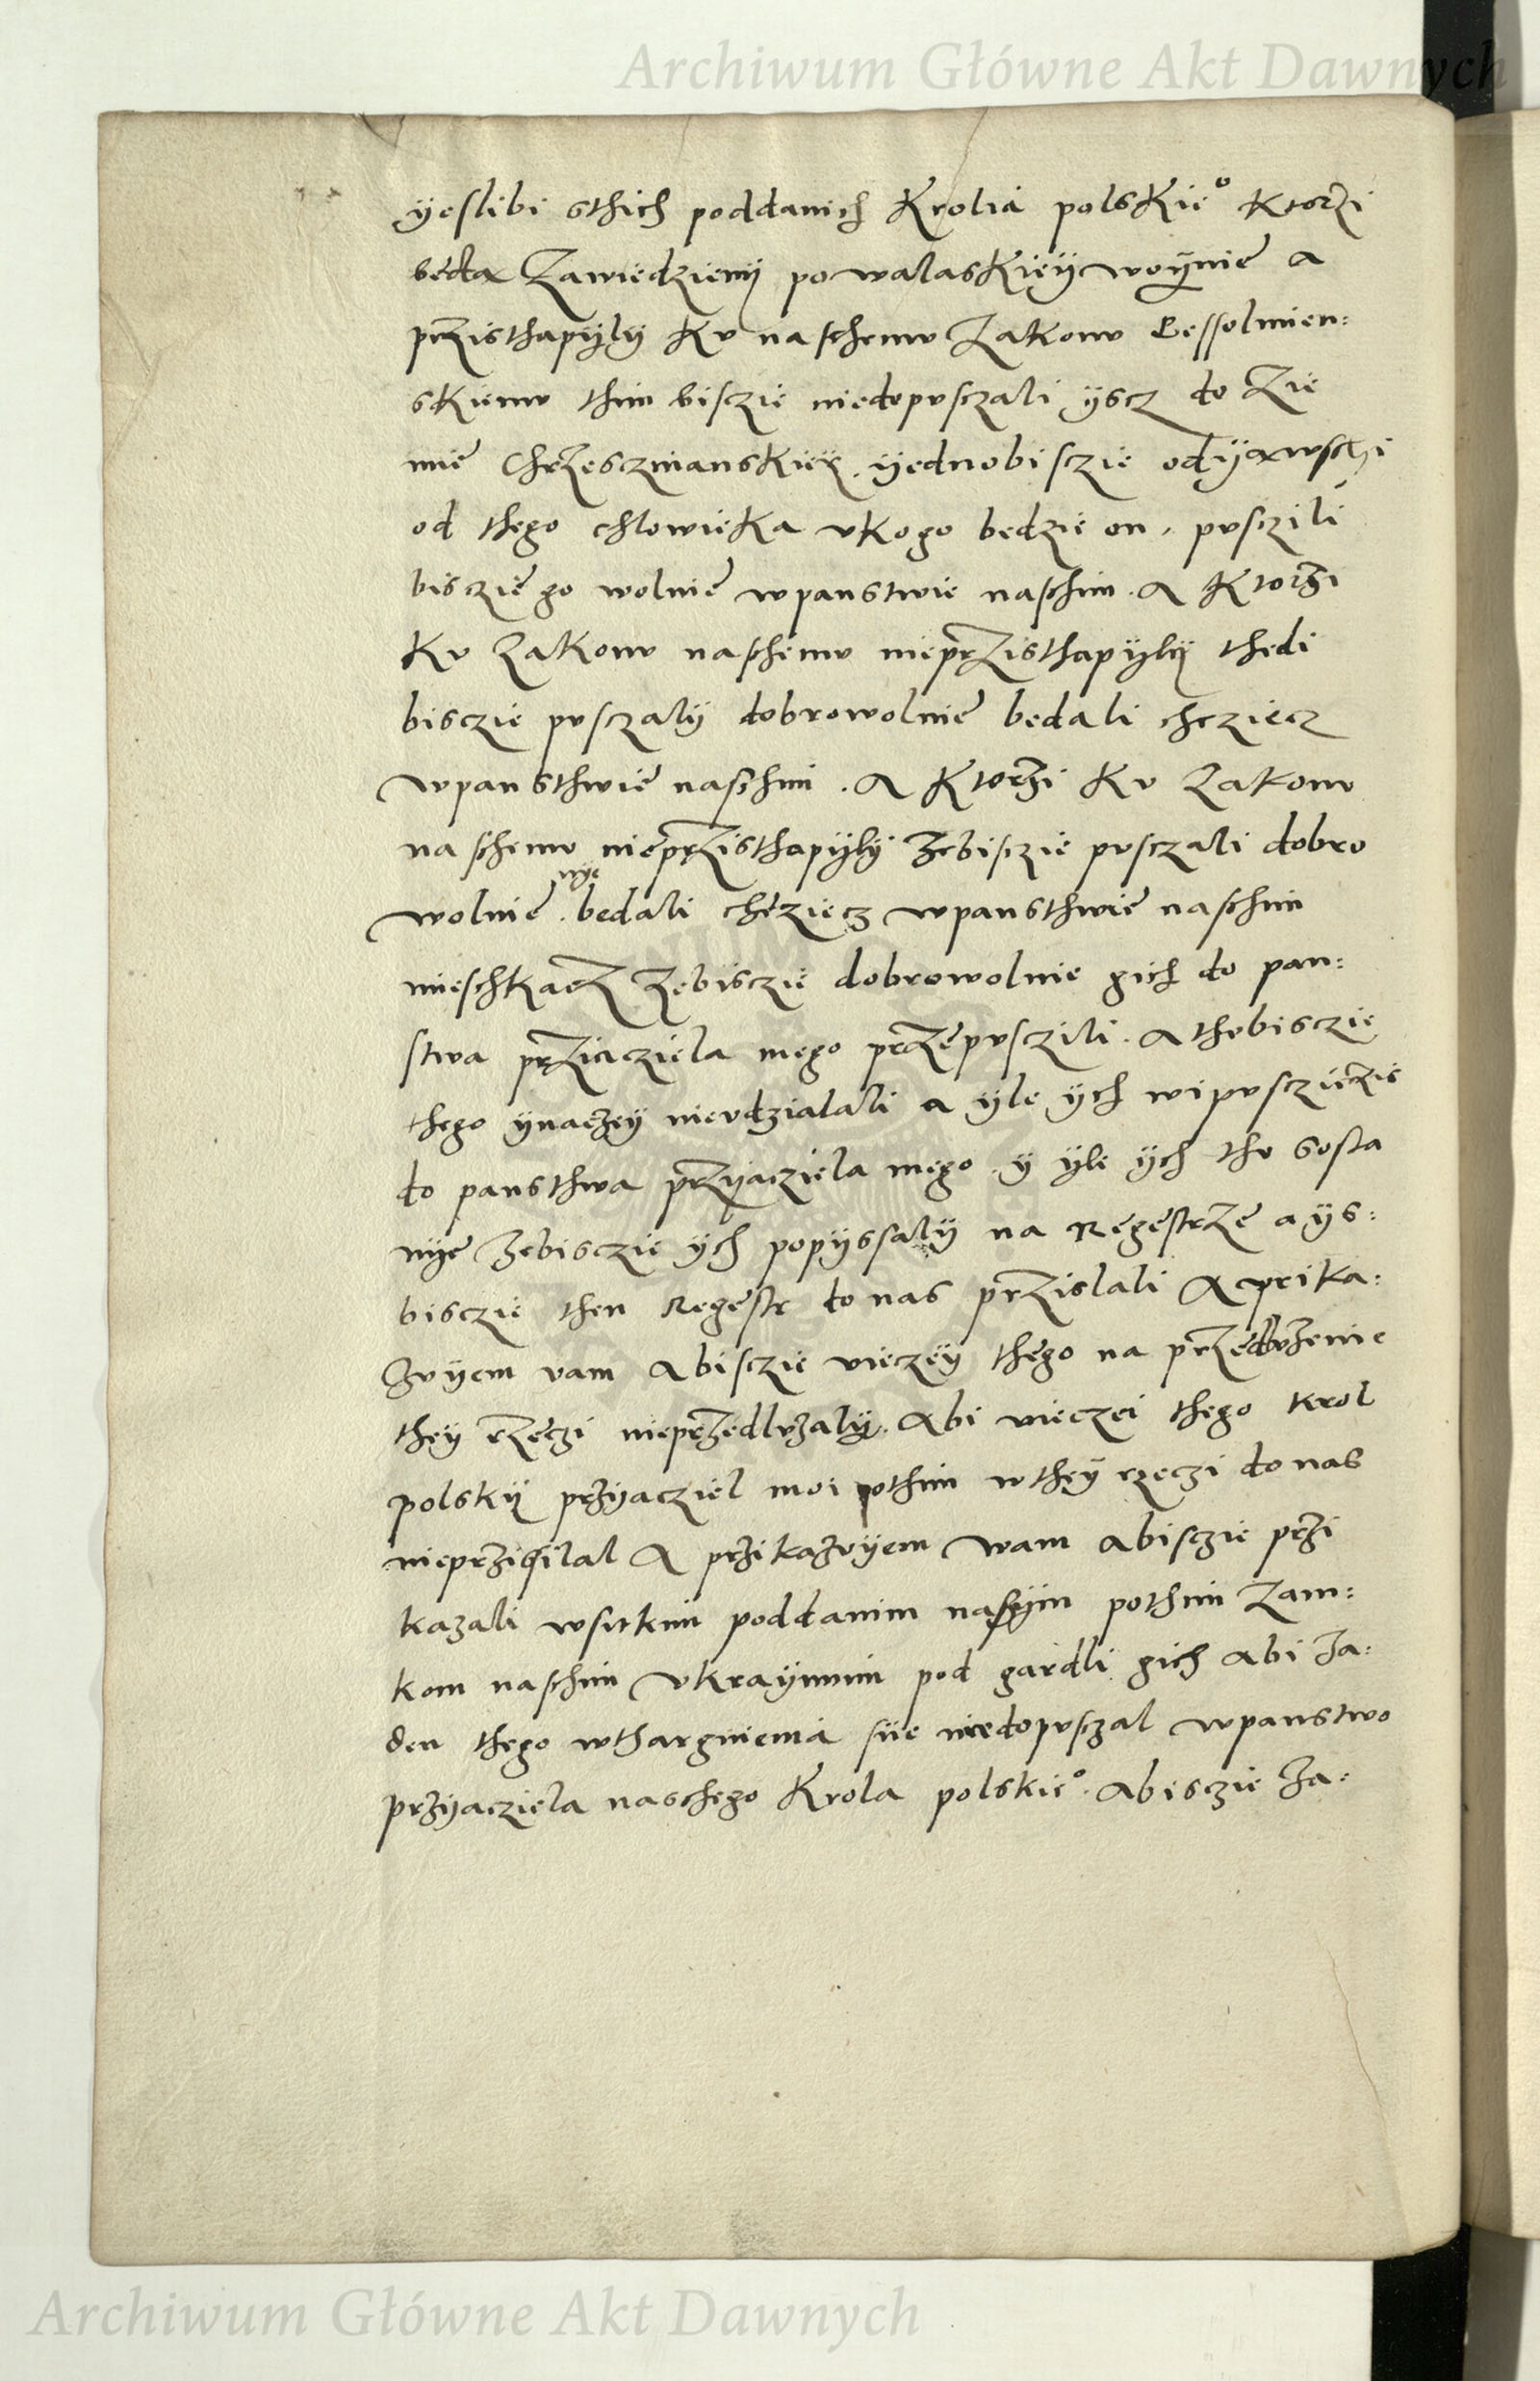 Archiwum Główne Akt Dawnych
yeslibi sthich poddanich Krolia polskie° Ktorzi
beda Zawiedzieny po walaskiey woynie a
przisthapyly Kv naschemv Zakonv Bessolmien:
skiemv thim bisczie niedopvsczali yscz do Zie
mie Chrzesczianskiey. yednobisczie odyawschi
od thego chlowieka vkogo bedzie on, pvsczili
bisczie go wolnie wpanstwie naschim. A Ktorzi
Kv Zakonv naschemv nieprzisthapyly thedi
bisczie pvsczaly dobrowolnie bedali chcziecz
wpansthwie naschim. A Ktorzi Kv Zakonv
naschemv nieprzisthapyly zebisczie pvsczali dobro
wolnie. nye bedali chcziecz wpansthwie naschim
mieschkacz Zebisczie dobrowolnie gich do pan:
stwa prziacziela mego przepvsczili. A thobisczie
thego ynaczey nievdzialali a yle ych wipvsczicie
do pansthwa przyacziela mego. y yle ych thv sosta
nye zebisczie ych popyssaly na Regestrze a ys:
bisczie then Regestr do nas przislali A prika:
zvyem vam Abisczie vieczey thego na przedlvzenie
they rzeczi nieprzedlvzaly. Abi vieczei thego krol
polsky przyacziel moi pothim wthey rzeczi do nas
nieprzisilal A przikazvyem wam Abisczie przi
kazali wsitkim poddanim naszym pothim Zam:
kom naschim Vkraynnim pod gardli gich Abi za:
den thego wthargnienia sie niedopvsczal wpanstwo
przyacziela naschego Krola polskie°. Abisczie za:
Archiwum Główne Akt Dawnych